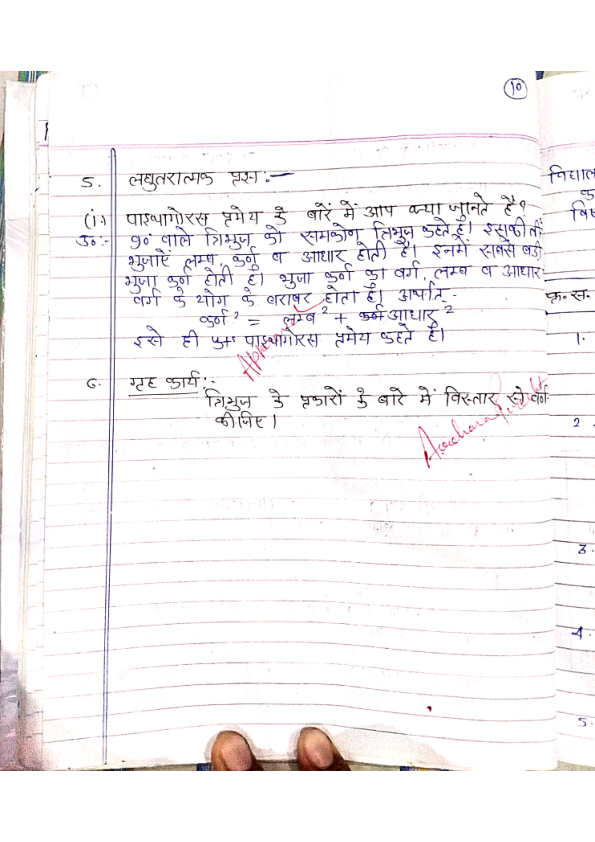 10
5. लघुतरात्मक प्रश्न :-
(i) पाइथागोरस प्रमेय के बारें में आप क्या जानते है?
उ०:- 90° वाले त्रिभुज को समकोण त्रिभुज कहते है। इसकी तीन
भुजाऐं लम्ब, कर्ण व आधार होती है। इनमें सबसे बडी
भुजा कर्ण होती है। भुजा कर्ण का वर्ग, लम्ब व आधार
वर्ग के योग के बराबर होता है। अर्थात् -
कर्ण² = लम्ब² + आधार²
इसे ही पाइथागोरस प्रमेय कहते है।
6. गृह कार्य :-
त्रिभुज के प्रकारों के बारे में विस्तार से
कीजिए।
क्र.स.
1.
2.
3.
4.
5.